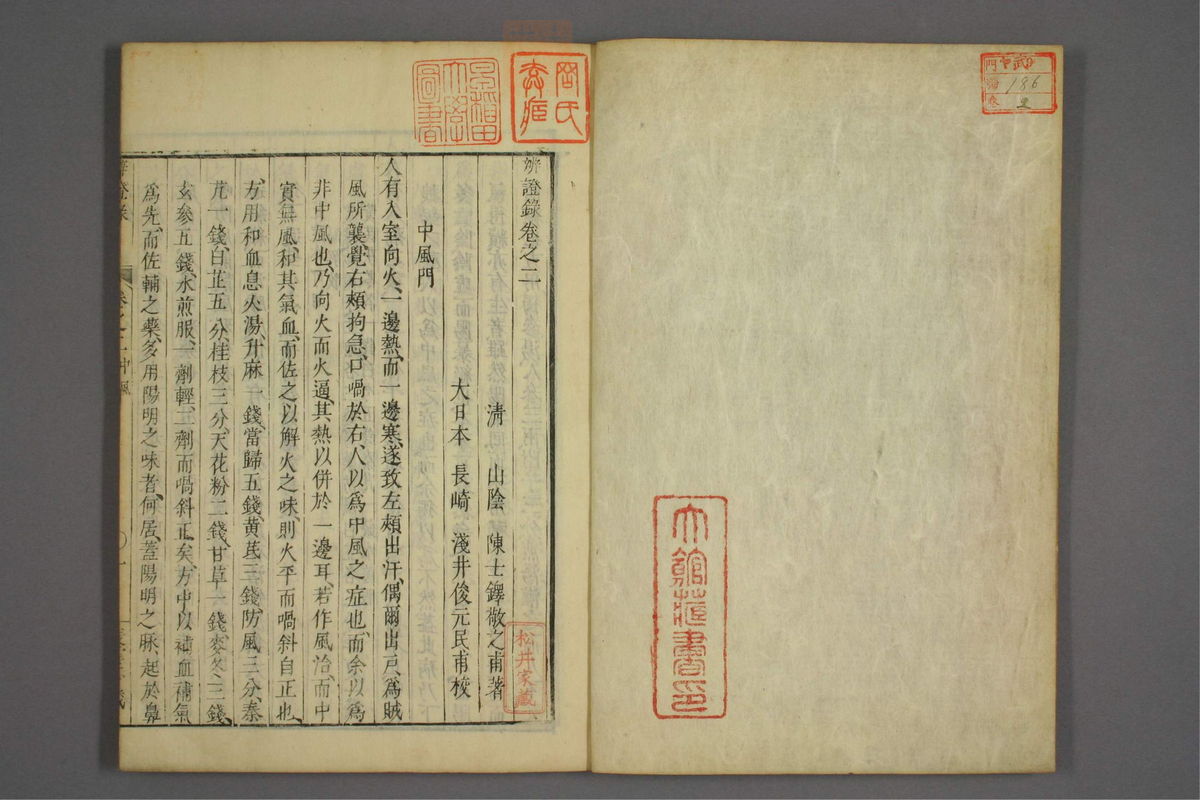 辨證錄卷之二
清　山陰　陳士鐸敬之甫著
大日本　長崎　淺井俊元民甫校
中風門
人有入室向火、一邊熱、而一邊寒、遂致左頰出汗、偶爾出戶、爲賊
風所襲、覺右頰拘急、口喎於右、人以爲中風之症也、而余以爲
非中風也、乃向火而火逼、其熱以併於一邊耳、若作風治、而中
實無風、和其氣血、而佐之以解火之味、則火平而喎斜自正也、
方用和血息火湯、升麻一錢、當歸五錢、黃芪三錢、防風三分、秦
艽一錢、白芷五分、桂枝三分、天花粉二錢、甘草一錢、麥冬三錢、
玄參五錢、水煎服、一劑輕、二劑而喎斜正矣、方中以補血補氣
爲先、而佐輔之藥、多用陽明之味者、何居、蓋陽明之脈、起於鼻
松井家藏
大館藏書印
186